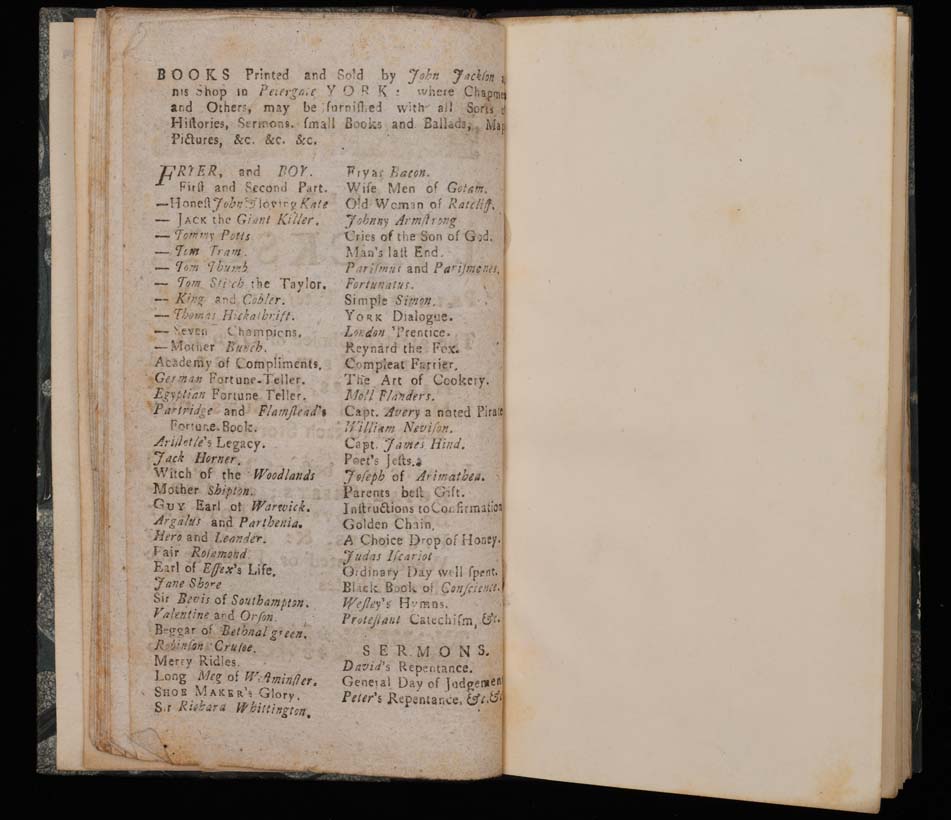 BOOKS Printed and Sold by John Jackſon
his Shop in Petergate YORK: where Chapmen
and Others, may be furniſhed with all Sorts
Hiſtories, Sermons. ſmall Books and Ballads, Map
Pictures, &c. &c. &c.
FRYER, and BOY.
Firſt and Second Part.
—Honeſt John & loving Kate
— JACK the Giant Killer.
— Tommy Potts
— Tom Tram.
— Tom Thumb
— Tom Stitch the Taylor.
— King and Cobler.
— Thomas Hickathrift.
— Seven Champions.
— Mother Bunch.
Academy of Compliments.
German Fortune-Teller.
Egyptian Fortune Teller.
Partridge and Flamſtead's
Fortune-Book.
Ariſtotle's Legacy.
Jack Horner.
Witch of the Woodlands
Mother Shipton.
GUY Earl of Warwick.
Argalus and Parthenia.
Hero and Leander.
Fair Roſamond
Earl of Eſſex's Life.
Jane Shore
Sir Bevis of Southampton.
Valentine and Orſon.
Beggar of Bethnal green.
Robinſon Cruſoe.
Merry Ridles.
Long Meg of Weſtminſter.
SHOE MAKER's Glory.
Sir Richard Whittington.
Fryar Bacon.
Wiſe Men of Gotam.
Old Woman of Ratcliff.
Johnny Armſtrong
Cries of the Son of God.
Man's laſt End.
Pariſmus and Pariſmenes.
Fortunatus.
Simple Simon.
YORK Dialogue.
London 'Prentice.
Reynard the Fox.
Compleat Farrier.
The Art of Cookery.
Moll Flanders.
Capt. Avery a noted Pirate
William Neviſon.
Capt. James Hind.
Poet's Jeſts.
Joſeph of Arimathea.
Parents beſt Gift.
Inſtructions to Confirmation
Golden Chain.
A Choice Drop of Honey.
Judas Iſcariot
Ordinary Day well ſpent.
Black Book of Conſcience.
Weſley's Hymns.
Proteſtant Catechiſm, &c.
SERMONS.
David's Repentance.
General Day of Judgemen
Peter's Repentance, &c. &